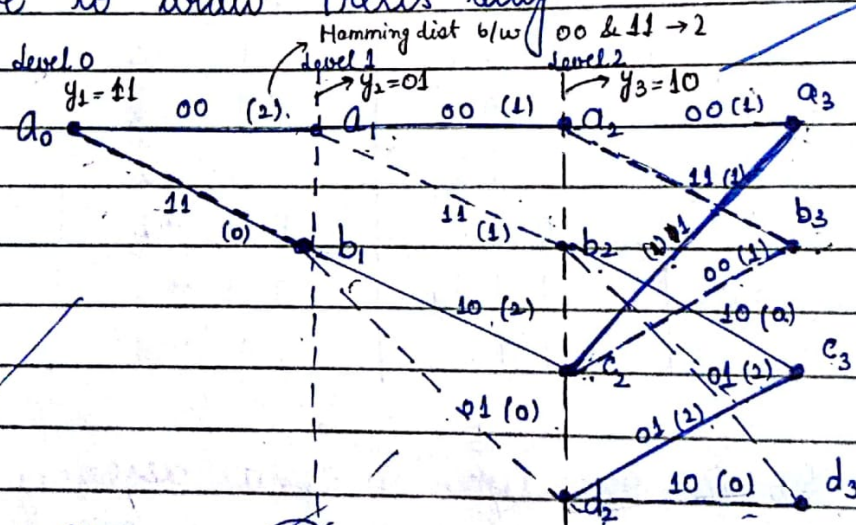 to draw
Hamming dist b/w 00 & 11 → 2
Level 0 Level 1 Level 2
y1 = 11 → y2 = 01 → y3 = 10
a0 00 (2) a1 00 (1) a2 00 (1) a3
11 (0) 11 (1) 11 (1)
b1 b2 b3
(1) 11 00 (1)
10 (2) 10 (0)
c2 01 (2) c3
01 (0) 01 (2)
d2 10 (0) d3